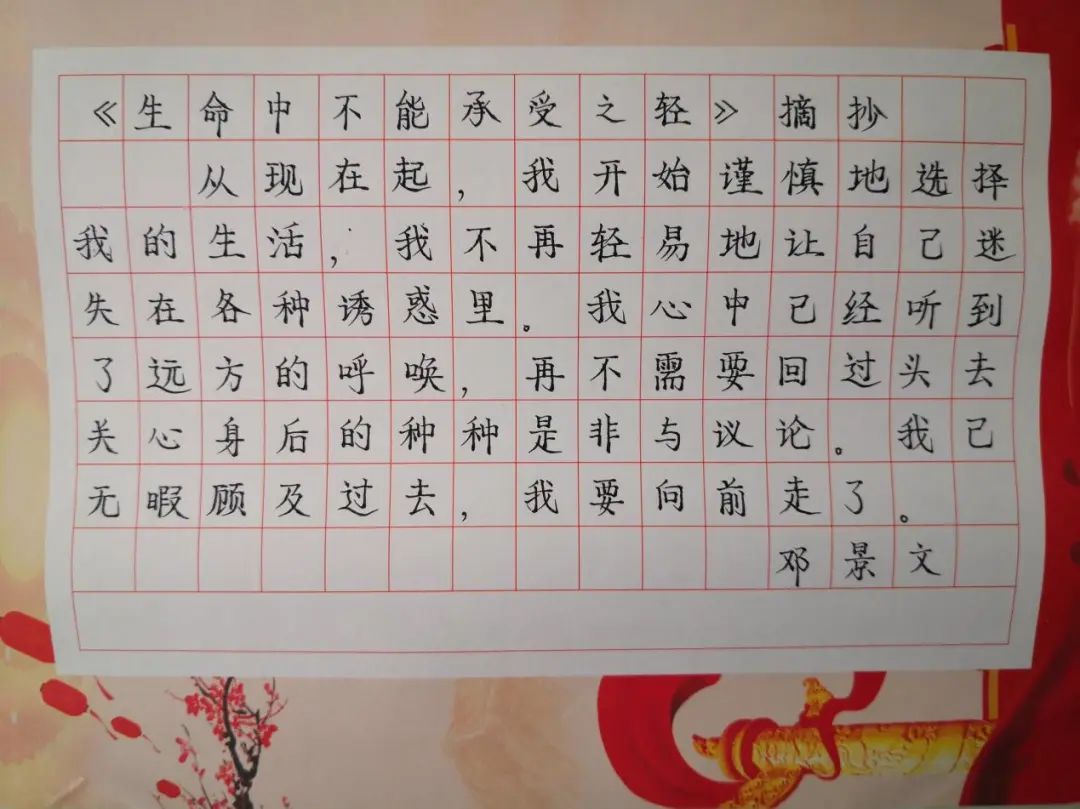 《生命中不能承受之轻》摘抄
从现在起，我开始谨慎地选择
我的生活，我不再轻易地让自己迷
失在各种诱惑里。我心中已经听到
了远方的呼唤，再不需要回过头去
关心身后的种种是非与议论。我已
无暇顾及过去，我要向前走了。
邓景文